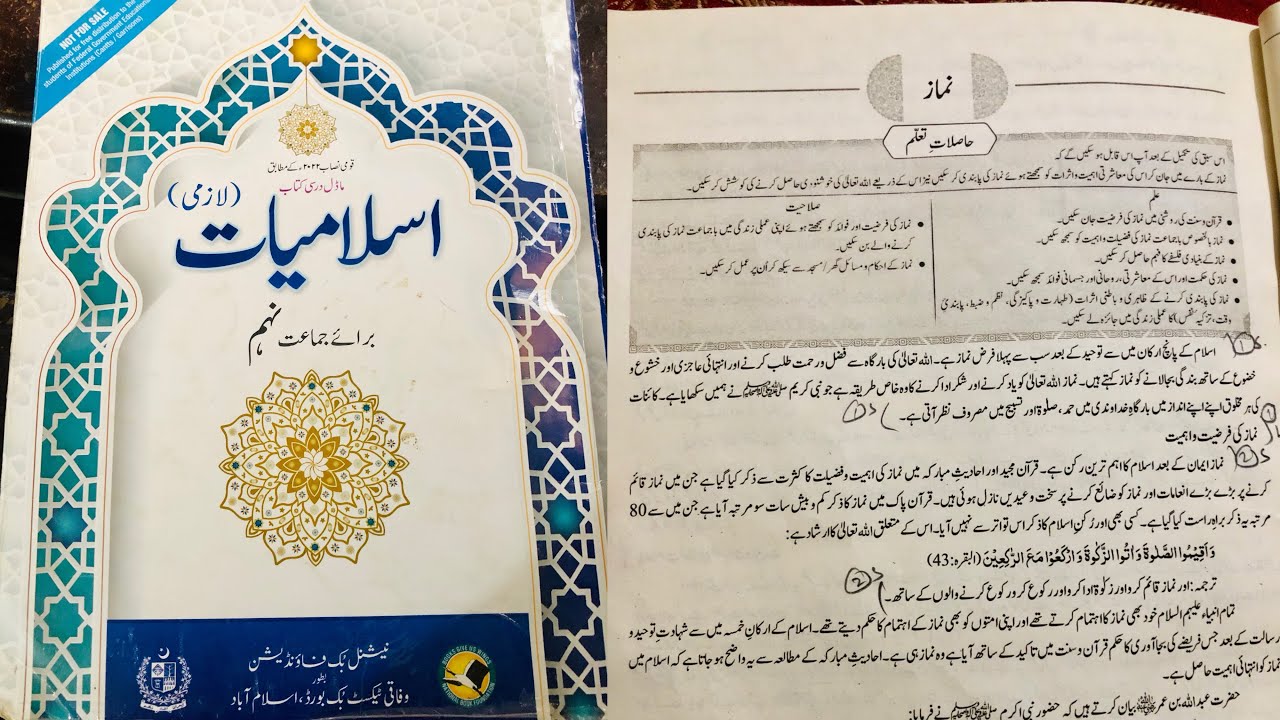 NOT FOR SALE
Published for free distribution to the
students of Federal Government Educational
Institutions (Cantts / Garrisons)
قومی نصاب ۲۰۲۲ء کے مطابق
ماڈل درسی کتاب
اسلامیات (لازمی)
برائے جماعت نہم
نیشنل بک فاؤنڈیشن
بطور
وفاقی ٹیکسٹ بک بورڈ، اسلام آباد
نماز
حاصلاتِ تعلّم
اس سبق کی تکمیل کے بعد آپ اس قابل ہو سکیں گے کہ
نماز کے بارے میں جان کر اس کی معاشرتی اہمیت و اثرات کو سمجھتے ہوئے نماز کی پابندی کر سکیں نیز اس کے ذریعے اللہ تعالیٰ کی خوشنودی حاصل کرنے کی کوشش کر سکیں۔
علم
• قرآن و سنت کی روشنی میں نماز کی فرضیت جان سکیں۔
• نماز بالخصوص باجماعت نماز کی فضیلت و اہمیت کو سمجھ سکیں۔
• نماز کے بنیادی فلسفے کا فہم حاصل کر سکیں۔
• نماز کی حکمت اور اس کے معاشرتی، روحانی اور جسمانی فوائد سمجھ سکیں۔
• نماز کی پابندی کرنے کے ظاہری و باطنی اثرات (طہارت و پاکیزگی، نظم و ضبط، پابندیِ
وقت، تزکیہ نفس) کا عملی زندگی میں جائزہ لے سکیں۔
صلاحیت
• نماز کی فرضیت اور فوائد کو سمجھتے ہوئے اپنی عملی زندگی میں باجماعت نماز کی پابندی
کرنے والے بن سکیں۔
• نماز کے احکام و مسائل گھر/مسجد سے سیکھ کر اُن پر عمل کر سکیں۔
اسلام کے پانچ ارکان میں سے توحید کے بعد سب سے پہلا فرض نماز ہے۔ اللہ تعالیٰ کی بارگاہ سے فضل و رحمت طلب کرنے اور انتہائی عاجزی اور خشوع و
خضوع کے ساتھ بندگی بجا لانے کو نماز کہتے ہیں۔ نماز اللہ تعالیٰ کو یاد کرنے اور شکر ادا کرنے کا وہ خاص طریقہ ہے جو نبی کریم ﷺ نے ہمیں سکھایا ہے۔ کائنات
کی ہر مخلوق اپنے اپنے انداز میں بارگاہِ خداوندی میں حمد، صلوٰۃ اور تسبیح میں مصروف نظر آتی ہے۔
نماز کی فرضیت و اہمیت
نماز ایمان کے بعد اسلام کا اہم ترین رکن ہے۔ قرآن مجید اور احادیثِ مبارکہ میں نماز کی اہمیت و فضیلت کا کثرت سے ذکر کیا گیا ہے جن میں نماز قائم
کرنے پر بڑے بڑے انعامات اور نماز کو ضائع کرنے پر سخت وعیدیں نازل ہوئی ہیں۔ قرآن پاک میں نماز کا ذکر کم و بیش سات سو مرتبہ آیا ہے جن میں سے 80
مرتبہ یہ ذکر براہِ راست کیا گیا ہے۔ کسی بھی اور رُکنِ اسلام کا ذکر اس تواتر سے نہیں آیا۔ اس کے متعلق اللہ تعالیٰ کا ارشاد ہے:
وَاَقِيْمُوا الصَّلٰوةَ وَاٰتُوا الزَّكٰوةَ وَارْكَعُوْا مَعَ الرّٰكِعِيْنَ (البقرہ:43)
ترجمہ: اور نماز قائم کرو اور زکوٰۃ ادا کرو اور رکوع کرو رکوع کرنے والوں کے ساتھ۔
تمام انبیاء علیہم السلام خود بھی نماز کا اہتمام کرتے تھے اور اپنی امتوں کو بھی نماز کے اہتمام کا حکم دیتے تھے۔ اسلام کے ارکانِ خمسہ میں سے شہادتِ توحید و
رسالت کے بعد جس فریضے کی بجا آوری کا حکم قرآن و سنت میں تاکید کے ساتھ آیا ہے وہ نماز ہی ہے۔ احادیثِ مبارکہ کے مطالعہ سے یہ واضح ہو جاتا ہے کہ اسلام میں
نماز کو انتہائی اہمیت حاصل ہے۔
حضرت عبد اللہ بن عمر بیان کرتے ہیں کہ حضور نبی اکرم ﷺ نے فرمایا: